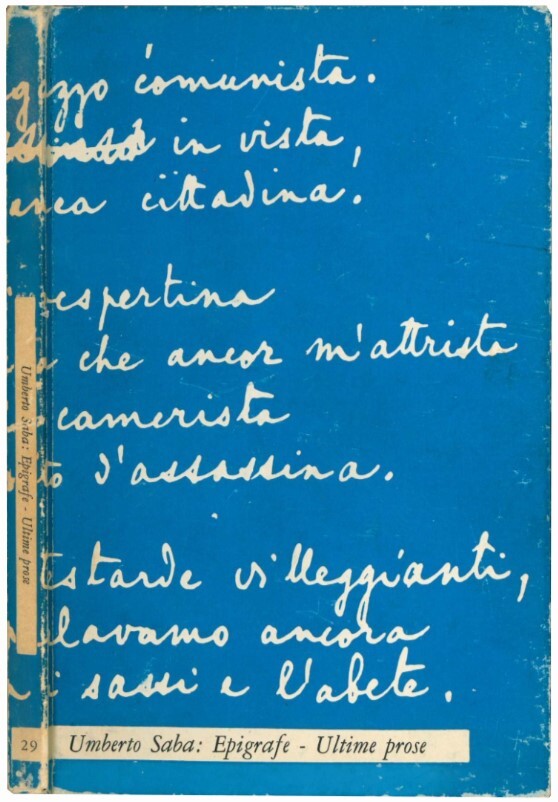 comunista.
in vista,
cittadina.
vespertina
che ancor m'attrista
camerista
d'assassina.
testarde villeggianti,
lavamo ancora
i sassi e l'abete.
Umberto Saba: Epigrafe - Ultime prose
29
Umberto Saba: Epigrafe - Ultime prose